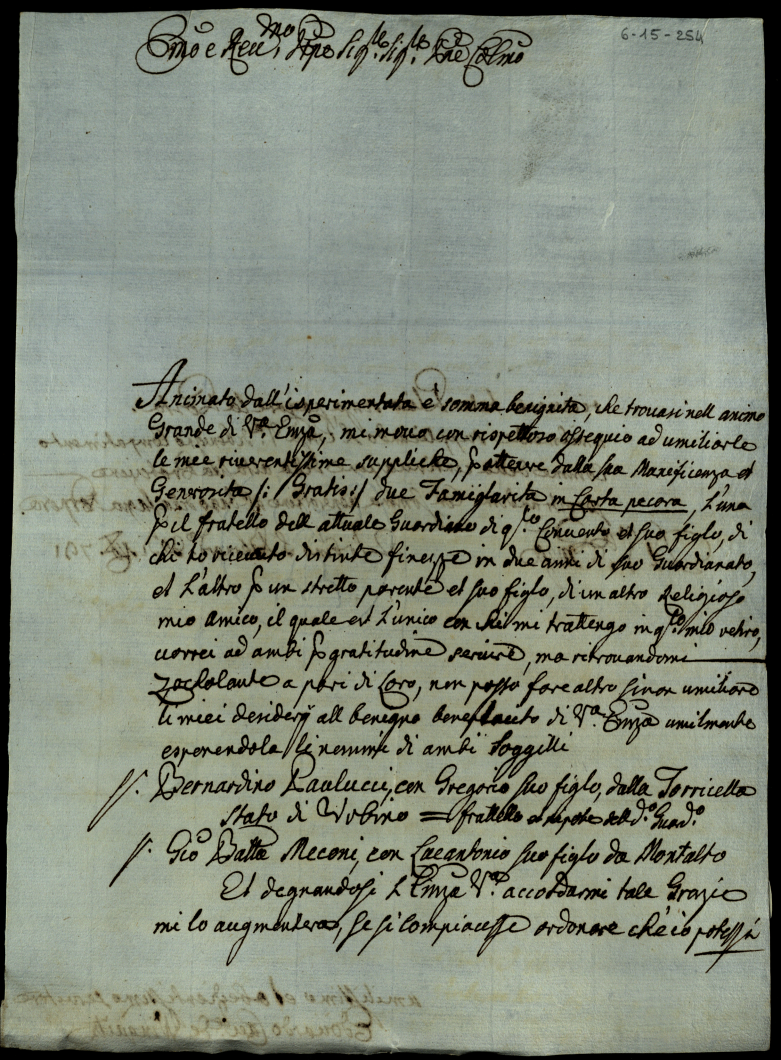 6-15-254
Emo e Rev.dmo Sigre Sig.re Pne Colmo
Animato dall'isperimentata è somma benignita, che trovasi nell animo
Grande di V.a Emza, mi movo con rispettoso ossequio ad umiliarle
le mee riverentissime suppliche, p attenere dalla sua Munificenza et
Generosita /: Gratis :/ due Famigliarita in Carta pecora, L'una
p il fratello dell attuale Guardiano di q.sto Convento et suo figlo, di
chi ho ricevuto distinte finezze in due anni di suo Guardianato,
et L'altro p un stretto parente et suo figlo, di un altro Religioso
mio amico, il quale est L'unico con chi mi trattengo in q.sto mio retiro,
vorrei ad ambi p gratitudine servire, ma ritrovandomi
Zockolante a pari di Loro, non posso fare altro sinon umiliare
li miei desiderij all benigno beneplacito di V.a Emza umilmente
esponendola li nommi di ambi Soggitti
p. Bernardino Paulucci, con Gregorio suo figlo, dalla Torricella
stato di Urbino = fratello et nipote dell d.o Guard.o
p. Gio Batta Meconi, con Lucantonio suo figlo da Montalto
Et degnandosi L'Emza V.a accordarmi tale Grazie
mi lo augmentera, se si compiacesse ordonare ch'è io potessi